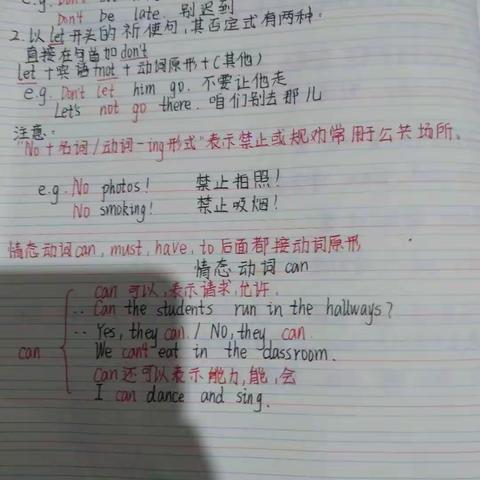 e.g. Don't
Don't be late. 别迟到
2. 以let开头的祈使句,其否定式有两种.
直接在句首加don't
let +宾语+not + 动词原形 + (其他)
e.g. Don't let him go. 不要让他走
Let's not go there. 咱们别去那儿
注意:
"No + 名词/动词-ing形式"表示禁止或规劝常用于公共场所.
e.g. No photos! 禁止拍照!
No smoking! 禁止吸烟!
情态动词can, must, have, to后面都接动词原形
情态动词 can
can 可以,表示请求,允许.
Can the students run in the hallways?
Yes, they can. / No, they can.
can
We can't eat in the classroom.
can还可以表示能力,能,会
I can dance and sing.